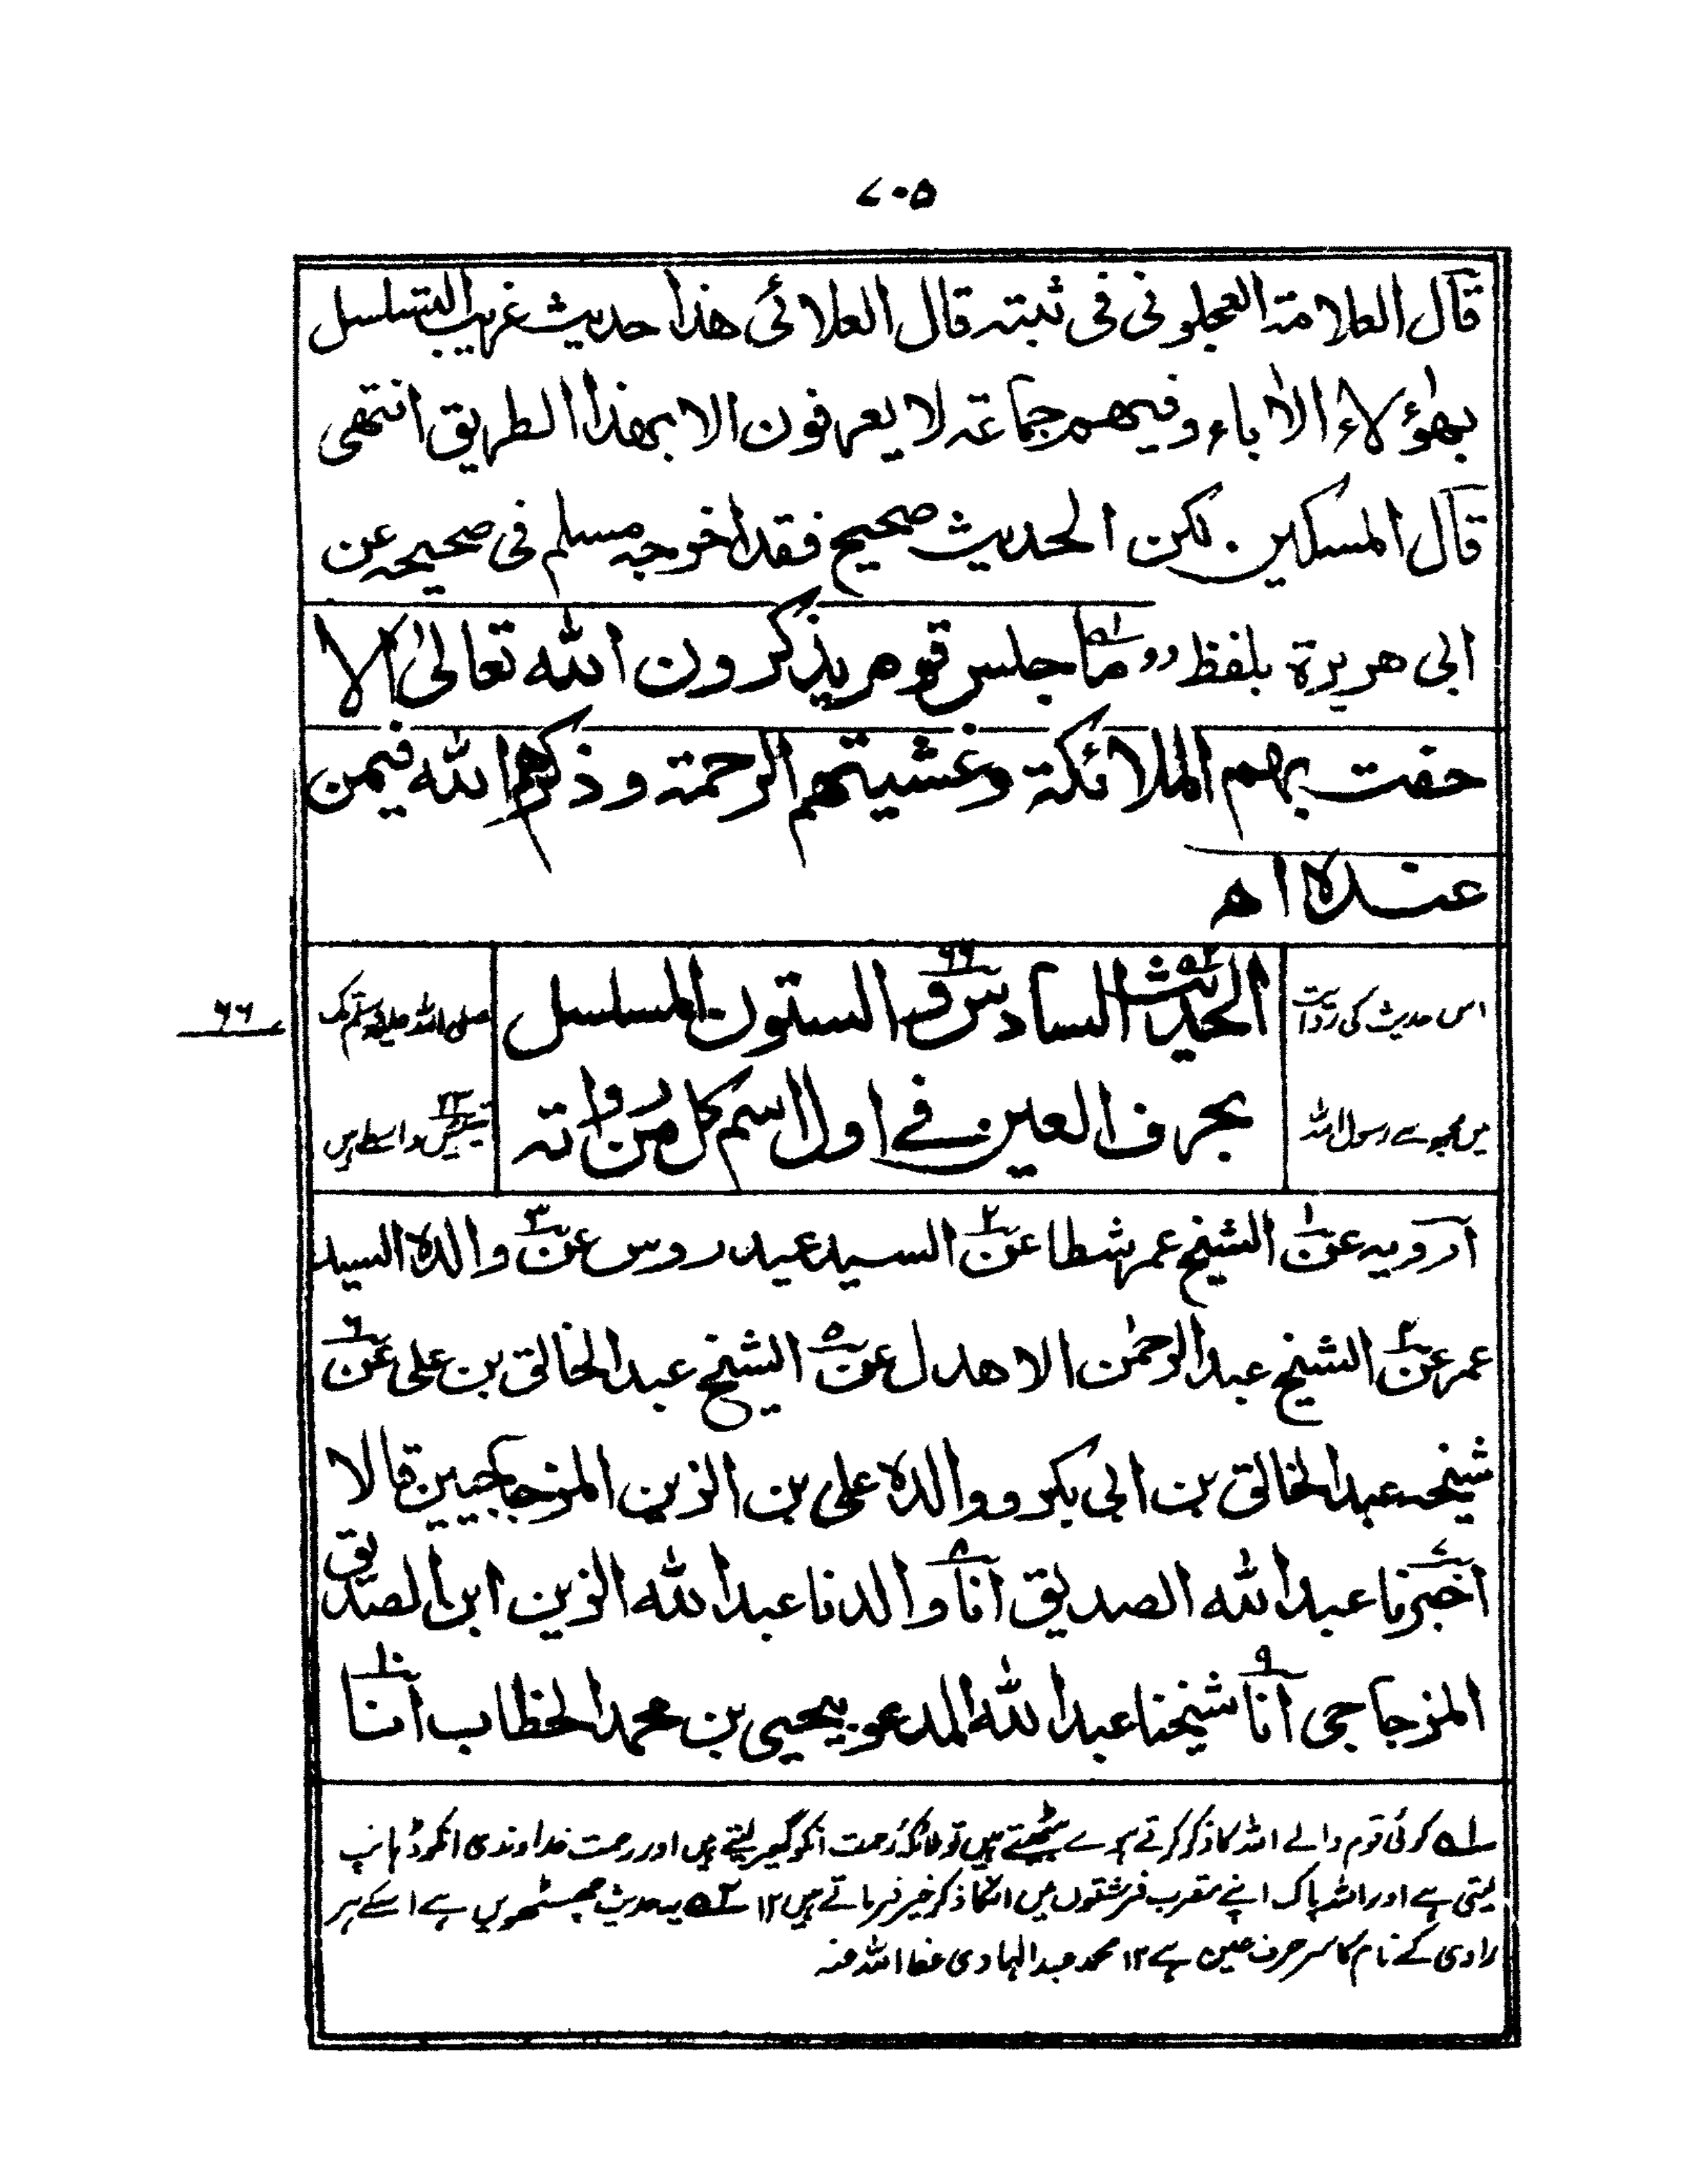 ۷۰۵
قال العلامة العجلونی فی ثبته قال العلائی هذا حدیث غریب التسلسل
بهٰؤلاء الاٰباء وفیهم جماعة لا یعرفون الا بهذا الطریق انتهی
قال المسکین لکن الحدیث صحیح فقد اخرجه مسلم فی صحیحه عن
ابی هریرة بلفظ رر ما ۱ه جلس قوم یذکرون الله تعالیٰ الا
حفت بهم الملائکة وغشیتهم الرحمة و ذکرهم الله فیمن
عنده اه
اس حدیث کی روایت
میں مجھ سے رسول اللہ
الحدیث ۲ه السادس ۶۶ و الستون المسلسل
بحرف العین فے اول اسم کل من رواته
صلی اللہ علیہ وسلم تک
تیئیس ۲۳ واسطے ہیں
۶۶
ارویه عن ۱ الشیخ عمر شطا عن ۲ السید عیدروس عن ۳ والده السید
عمر عن ۴ الشیخ عبد الرحمٰن الاهدل عن ۵ الشیخ عبد الخالق بن علی عن ۶
شیخه عبد الخالق بن ابی بکر ووالده علی بن الزین المزجاجیین قالا
اخبرنا ۷ عبد الله الصدیق انا ۸ والدنا عبد الله الزین ابن الصدیق
المزجاجی انا ۹ شیخنا عبد الله المدعو بیحیی بن محمد الخطاب انا ۱۰
۱ه کوئی قوم والے اللہ کا ذکر کرتے ہوے بیٹھتے ہیں تو ملائکۂ رحمت انکو گھیر لیتے ہیں اور رحمت خداوندی انکو ڈہانپ
لیتی ہے اور اللہ پاک اپنے مقرب فرشتوں میں انکا ذکر خیر فرماتے ہیں ۱۲ ۲ه یہ حدیث چھسٹھویں ہے اسکے ہر
راوی کے نام کا سر حرف عین ہے ۱۲ محمد عبد الہادی عفا اللہ عنہ